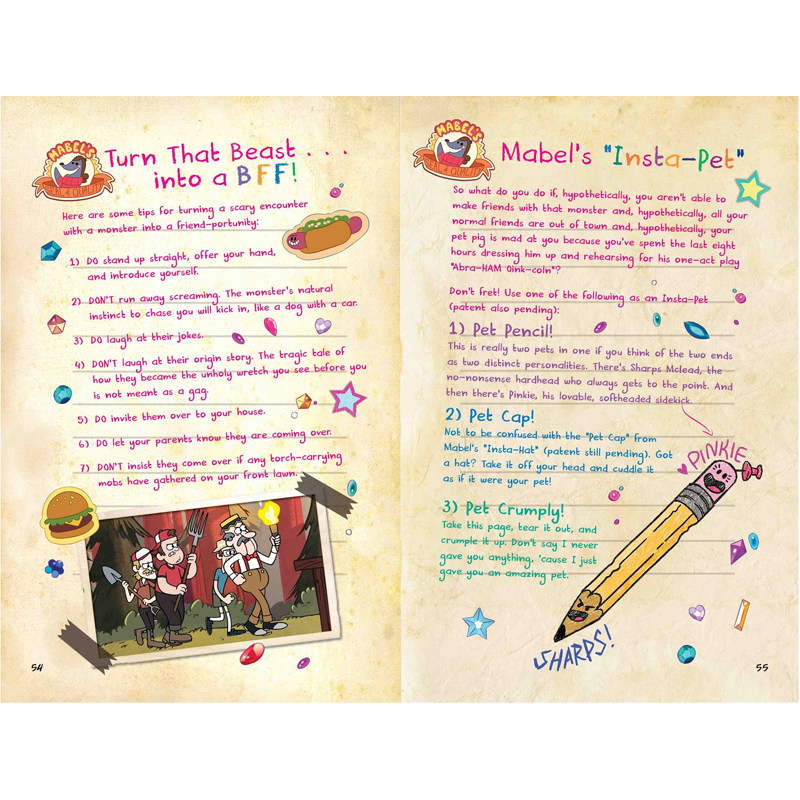 MABEL'S
SEAL O' QUALITY
Turn That Beast . . .
into a BFF!
Here are some tips for turning a scary encounter
with a monster into a friend-portunity:
1) DO stand up straight, offer your hand,
and introduce yourself.
2) DON'T run away screaming. The monster's natural
instinct to chase you will kick in, like a dog with a car.
3) DO laugh at their jokes.
4) DON'T laugh at their origin story. The tragic tale of
how they became the unholy wretch you see before you
is not meant as a gag.
5) DO invite them over to your house.
6) DO let your parents know they are coming over.
7) DON'T insist they come over if any torch-carrying
mobs have gathered on your front lawn.
54
MABEL'S
SEAL O' QUALITY
Mabel's "Insta-Pet"
So what do you do if, hypothetically, you aren't able to
make friends with that monster and, hypothetically, all your
normal friends are out of town and, hypothetically, your
pet pig is mad at you because you've spent the last eight
hours dressing him up and rehearsing for his one-act play
"Abra-HAM Oink-coln"?
Don't fret! Use one of the following as an Insta-Pet
(patent also pending):
1) Pet Pencil!
This is really two pets in one if you think of the two ends
as two distinct personalities. There's Sharps Mclead, the
no-nonsense hardhead who always gets to the point. And
then there's Pinkie, his lovable, softheaded sidekick.
2) Pet Cap!
Not to be confused with the "Pet Cap" from
Mabel's "Insta-Hat" (patent still pending). Got
a hat? Take it off your head and cuddle it
as if it were your pet!
3) Pet Crumply!
Take this page, tear it out, and
crumple it up. Don't say I never
gave you anything, 'cause I just
gave you an amazing pet.
PINKIE
SHARPS!
55